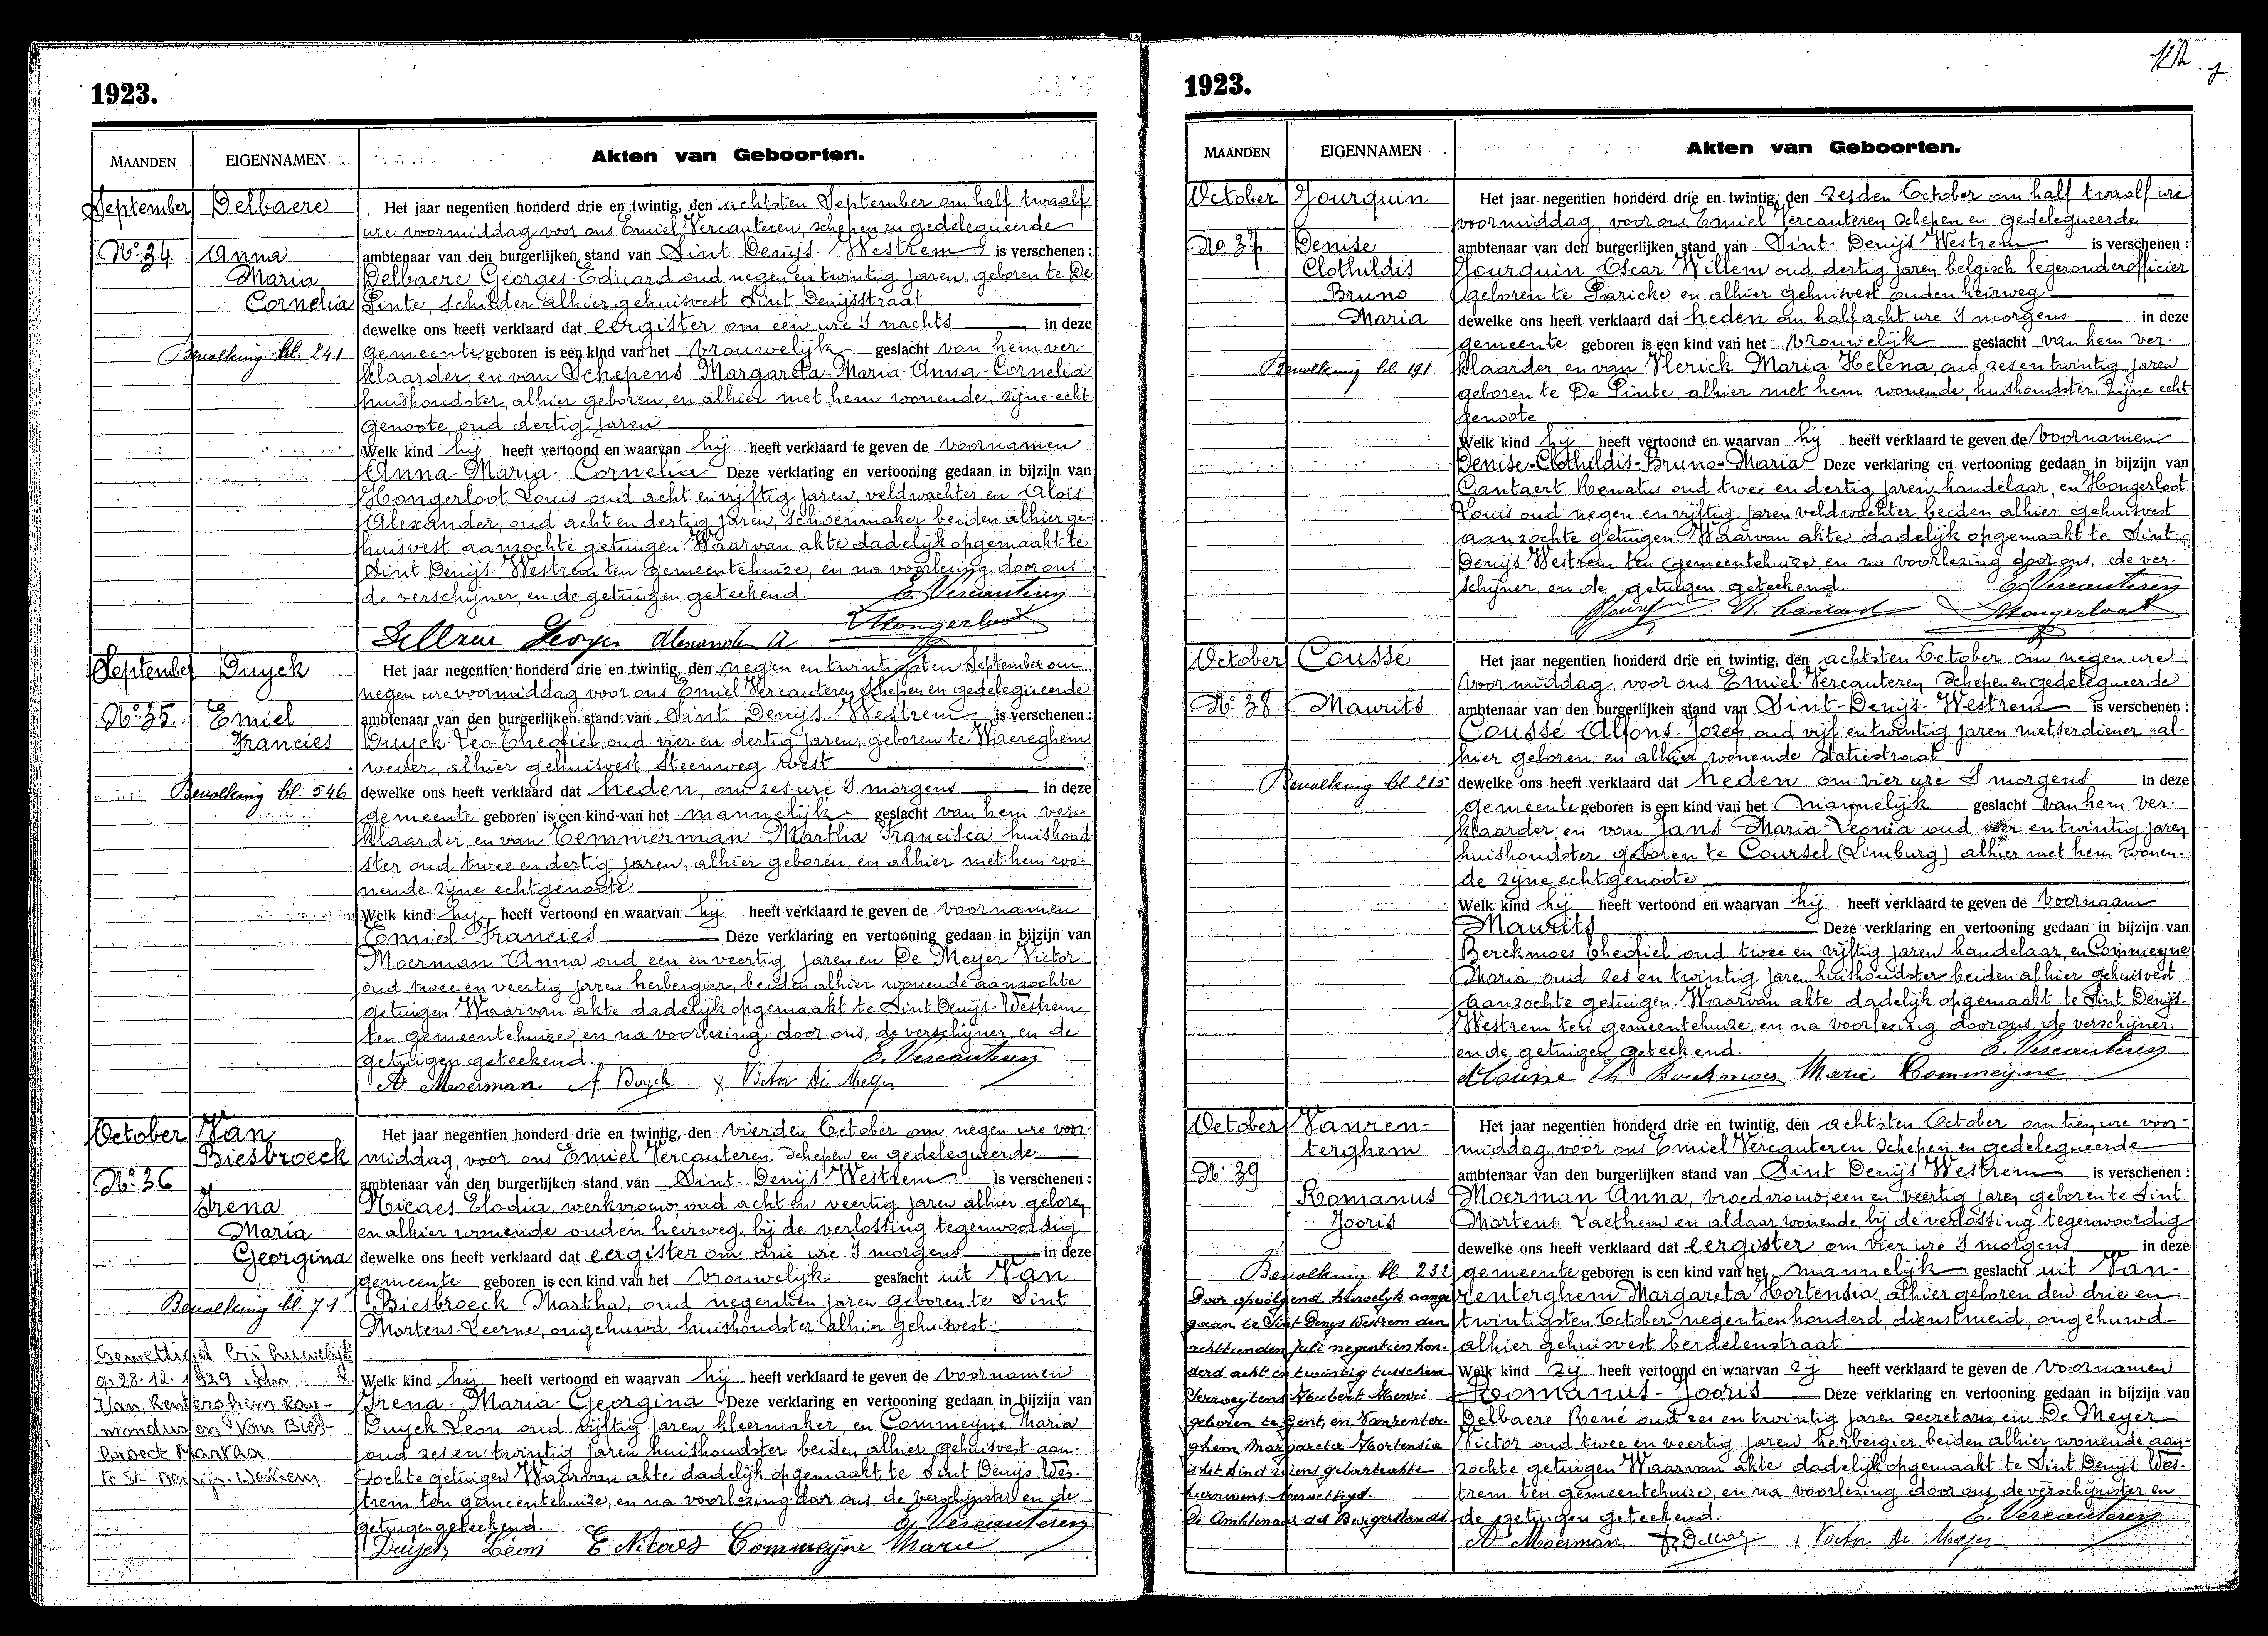 1923.
MAANDEN EIGENNAMEN Akten van Geboorten.
September Delbaere Het jaar negentien honderd drie en twintig, den achtsten September om half twaalf
ure voormiddag voor ons Emiel Vercauteren, schepen en gedelegueerde
No. 34. Anna ambtenaar van den burgerlijken stand van Sint Denijs-Westrem is verschenen:
Maria Delbaere Georges-Eduard oud negen en twintig jaren, geboren te De
Cornelia Pinte, schilder alhier gehuisvest Sint Denijsstraat
dewelke ons heeft verklaard dat eergister om een ure 's nachts in deze
Bevolking bl. 241 gemeente geboren is een kind van het vrouwelijk geslacht van hem ver-
klaarder, en van Schepens Margareta-Maria-Anna-Cornelia
huishoudster, alhier geboren, en alhier met hem wonende, zijne echt-
genoote, oud dertig jaren
Welk kind hij heeft vertoond en waarvan hij heeft verklaard te geven de voornamen
Anna-Maria-Cornelia Deze verklaring en vertooning gedaan in bijzijn van
Hongerloot Louis oud acht en vijftig jaren, veldwachter, en Aloïs
Alexander, oud acht en dertig jaren, schoenmaker beiden alhier ge-
huisvest aanzochte getuigen. Waarvan akte dadelijk opgemaakt te
Sint Denijs-Westrem ten gemeentehuize, en na voorlezing door ons
de verschijner, en de getuigen geteekend. E. Vercauteren
Georges Alexander A. LHongerloot
September Duyck Het jaar negentien honderd drie en twintig, den negen en twintigsten September om
negen ure voormiddag voor ons Emiel Vercauteren, Schepen en gedelegueerde
No. 35. Emiel ambtenaar van den burgerlijken stand van Sint Denijs-Westrem is verschenen:
Francies Duyck Leo-Theofiel, oud vier en dertig jaren, geboren te Waereghem
wever, alhier gehuisvest Steenweg west
Bevolking bl. 546 dewelke ons heeft verklaard dat heden, om zes ure 's morgens in deze
gemeente geboren is een kind van het mannelijk geslacht van hem ver-
klaarder, en van Temmerman Martha Francisca, huishoud-
ster oud twee en dertig jaren, alhier geboren, en alhier met hem wo-
nende zijne echtgenoote
Welk kind hij heeft vertoond en waarvan hij heeft verklaard te geven de voornamen
Emiel-Francies Deze verklaring en vertooning gedaan in bijzijn van
Moerman Anna oud een en veertig jaren, en De Meyer Victor
oud twee en veertig jaren, herbergier, beiden alhier wonende aanzochte
getuigen. Waarvan akte dadelijk opgemaakt te Sint Denijs-Westrem
ten gemeentehuize, en na voorlezing door ons, de verschijner, en de
getuigen geteekend. E. Vercauteren
A Moerman Duyck Victor De Meyer
October Van Het jaar negentien honderd drie en twintig, den vierden October om negen ure voor-
Biesbroeck middag, voor ons Emiel Vercauteren Schepen en gedelegueerde
No. 36 ambtenaar van den burgerlijken stand van Sint-Denijs Westrem is verschenen:
Irena Nicaes Elodia, werkvrouw, oud acht en veertig jaren alhier geboren
Maria en alhier wonende ouden heirweg, bij de verlossing tegenwoordig
Georgina dewelke ons heeft verklaard dat eergister om drie ure 's morgens in deze
gemeente geboren is een kind van het vrouwelijk geslacht uit Van
Bevolking bl. 71 Biesbroeck Martha, oud negentien jaren geboren te Sint
Martens-Leerne, ongehuwd, huishoudster alhier gehuisvest.
Gewettigd bij huwelijk
28.12.1929 Welk kind hij heeft vertoond en waarvan hij heeft verklaard te geven de voornamen
Van Renterghem Ray- Irena-Maria-Georgina Deze verklaring en vertooning gedaan in bijzijn van
mondus en Van Bies- Duyck Leon oud vijftig jaren kleermaker, en Commeyne Maria
broeck Martha oud zes en twintig jaren huishoudster beiden alhier gehuisvest aan-
te St. Denijs-Westrem zochte getuigen Waarvan akte dadelijk opgemaakt te Sint Denijs Wes-
trem ten gemeentehuize, en na voorlezing door ons, de verschijnster en de
getuigen geteekend. E. Vercauteren
Duyck Léon E Nicaes Commeyne Marie
1923.
MAANDEN EIGENNAMEN Akten van Geboorten.
October Jourquin Het jaar negentien honderd drie en twintig, den zesden October om half twaalf ure
voormiddag, voor ons Emiel Vercauteren, Schepen en gedelegueerde
No. 37 Denise ambtenaar van den burgerlijken stand van Sint-Denijs Westrem is verschenen:
Clothildis Jourquin Oscar Willem oud dertig jaren belgisch legeronderofficier
Bruno geboren te Paricke en alhier gehuisvest ouden heirweg
Maria dewelke ons heeft verklaard dat heden om half acht ure 's morgens in deze
gemeente geboren is een kind van het vrouwelijk geslacht van hem ver-
Bevolking bl. 191 klaarder, en van Vlerick Maria Helena, oud zes en twintig jaren
geboren te De Pinte, alhier met hem wonende, huishoudster. Zijne echt
genoote
Welk kind hij heeft vertoond en waarvan hij heeft verklaard te geven de voornamen
Denise-Clothildis-Bruno-Maria Deze verklaring en vertooning gedaan in bijzijn van
Cantaert Renatus oud twee en dertig jaren, handelaar, en Hongerloot
Louis oud negen en vijftig jaren veldwachter, beiden alhier gehuisvest
aanzochte getuigen. Waarvan akte dadelijk opgemaakt te Sint-
Denijs Westrem ten gemeentehuize, en na voorlezing door ons, de ver-
schijner, en de getuigen geteekend. E. Vercauteren
Jourquin LHongerloot
October Coussé Het jaar negentien honderd drie en twintig, den achtsten October om negen ure
voormiddag, voor ons Emiel Vercauteren, Schepen en gedelegueerde
No. 38 Maurits ambtenaar van den burgerlijken stand van Sint-Denijs-Westrem is verschenen:
Coussé Alfons-Jozef, oud vijf en twintig jaren metserdiener al-
hier geboren en alhier wonende Statiestraat
Bevolking bl. 215 dewelke ons heeft verklaard dat heden om vier ure 's morgens in deze
gemeente geboren is een kind van het mannelijk geslacht van hem ver-
klaarder, en van Jans Maria-Leonia oud vier en twintig jaren
huishoudster geboren te Coursel (Limburg) alhier met hem wonen-
de zijne echtgenoote
Welk kind hij heeft vertoond en waarvan hij heeft verklaard te geven de voornaam
Maurits Deze verklaring en vertooning gedaan in bijzijn van
Berckmoes Theofiel oud twee en vijftig jaren handelaar, en Commeyne
Maria, oud zes en twintig jaren huishoudster beiden alhier gehuisvest
aanzochte getuigen. Waarvan akte dadelijk opgemaakt te Sint Denijs-
Westrem ten gemeentehuize, en na voorlezing door ons, de verschijner
en de getuigen geteekend. E. Vercauteren
Th Berckmoes Marie Commeyne
October Vanren- Het jaar negentien honderd drie en twintig, den achtsten October om tien ure voor-
terghem middag, voor ons Emiel Vercauteren Schepen en gedelegueerde
No. 39 ambtenaar van den burgerlijken stand van Sint Denijs Westrem is verschenen:
Romanus Moerman Anna, vroedvrouw, een en veertig jaren geboren te Sint
Jooris Martens-Laethem en aldaar wonende, bij de verlossing tegenwoordig
dewelke ons heeft verklaard dat eergister om vier ure 's morgens in deze
Bevolking bl. 232 gemeente geboren is een kind van het mannelijk geslacht uit Van-
Door opvolgend huwelijk aange- renterghem Margareta Hortensia, alhier geboren den drie en
gaan te Sint Denys Westrem den twintigsten October negentien honderd, dienstmeid, ongehuwd
achttienden Juli negentien hon- alhier gehuisvest berdelenstraat
derd acht en twintig tusschen Welk kind zij heeft vertoond en waarvan zij heeft verklaard te geven de voornamen
Serweytens Hubert Henri Romanus-Jooris Deze verklaring en vertooning gedaan in bijzijn van
geboren te Gent, en Vanrenter- Delbaere René oud zes en twintig jaren secretaris, en De Meyer
ghem Margareta Hortensia Victor oud twee en veertig jaren, herbergier, beiden alhier wonende aan-
is het kind wiens geboorteakte zochte getuigen Waarvan akte dadelijk opgemaakt te Sint Denijs Wes-
hiernevens gewettigd. trem ten gemeentehuize, en na voorlezing door ons, de verschijnster en
De Ambtenaar des Burgerstands de getuigen geteekend. E. Vercauteren
A Moerman Victor De Meyer